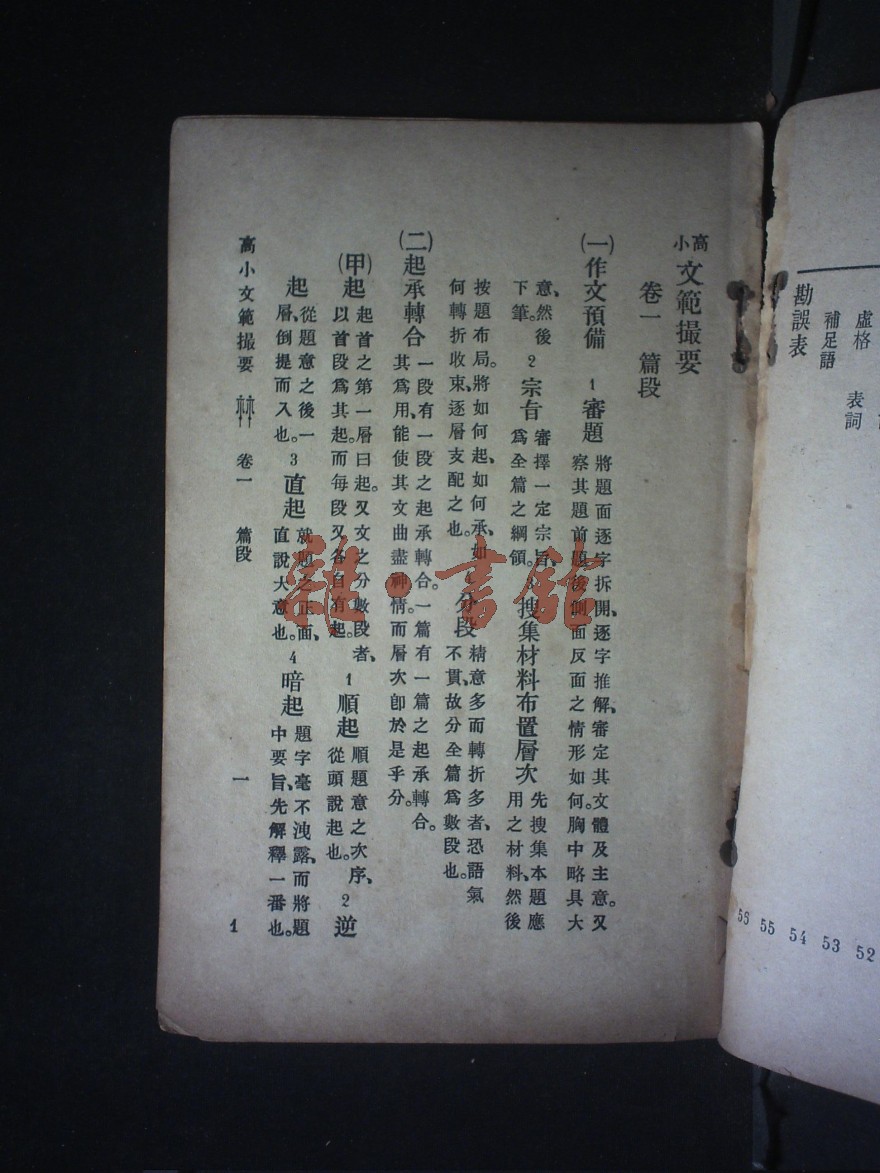 虛格
表詞
補足語
勘誤表
52
53
54
55
56
高小文範撮要
卷一 篇段
(一)作文預備 1 審題
將題面逐字拆開、逐字推解、審定其文體及主意。又
察其題前題後側面反面之情形如何。胸中略具大
意、然後
下筆。
2 宗旨
審擇一定宗旨、
爲全篇之綱領。
搜集材料布置層次
先搜集本題應
用之材料、然後
按題布局。將如何起、如何承、如
何轉折收束、逐層支配之也。
分段
精意多而轉折多者、恐語氣
不貫、故分全篇爲數段也。
(二)起承轉合
一段有一段之起承轉合。一篇有一篇之起承轉合。
其爲用、能使其文曲盡神情。而層次卽於是乎分。
(甲)起
起首之第一層曰起。又文之分數段者、
以首段爲其起。而每段又各自有起。
1 順起
順題意之次序、
從頭說起也。
2 逆
起
從題意之後一
層、倒提而入也。
3 直起
就題之正面、
直說大意也。
4 暗起
題字毫不洩露、而將題
中要旨、先解釋一番也。
高小文範撮要 卷一 篇段 一
1
雜·書館